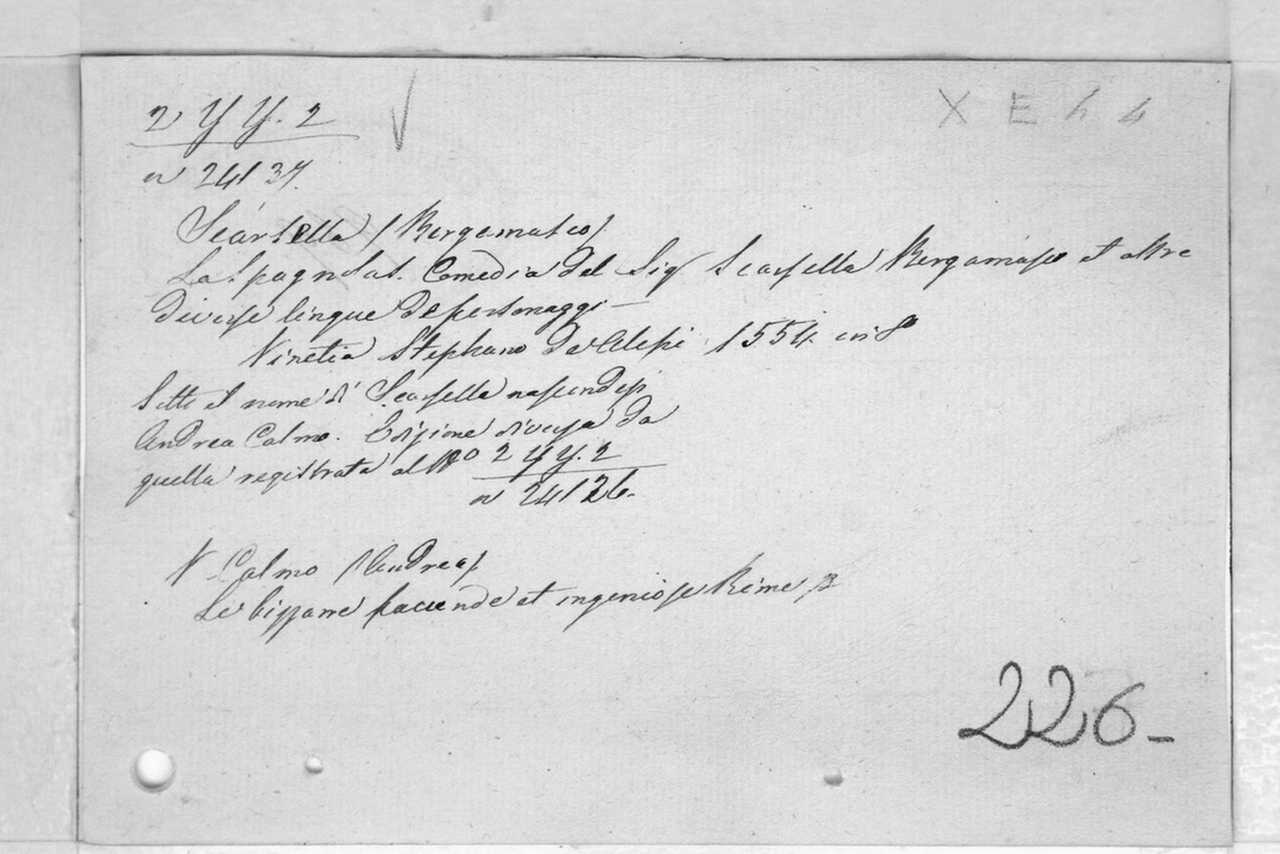 2 Y Y. 2 X E h 4
n 24137.
Scarsella (Bergamasco)
La Spagnolas. Comedia del Sig Scarsella Bergamasco et altre
diverse lingue de personaggi —
Vinetia Stephano de Alessi 1554. in 8º
Sotto il nome di Scarsella nascondesi
Andrea Calmo. Edizione diversa da
quella registrata al Nº 2 y y. 2
n 24126.
V. Calmo (Andrea)
Le bizzarre faconde et ingeniose Rime
226-